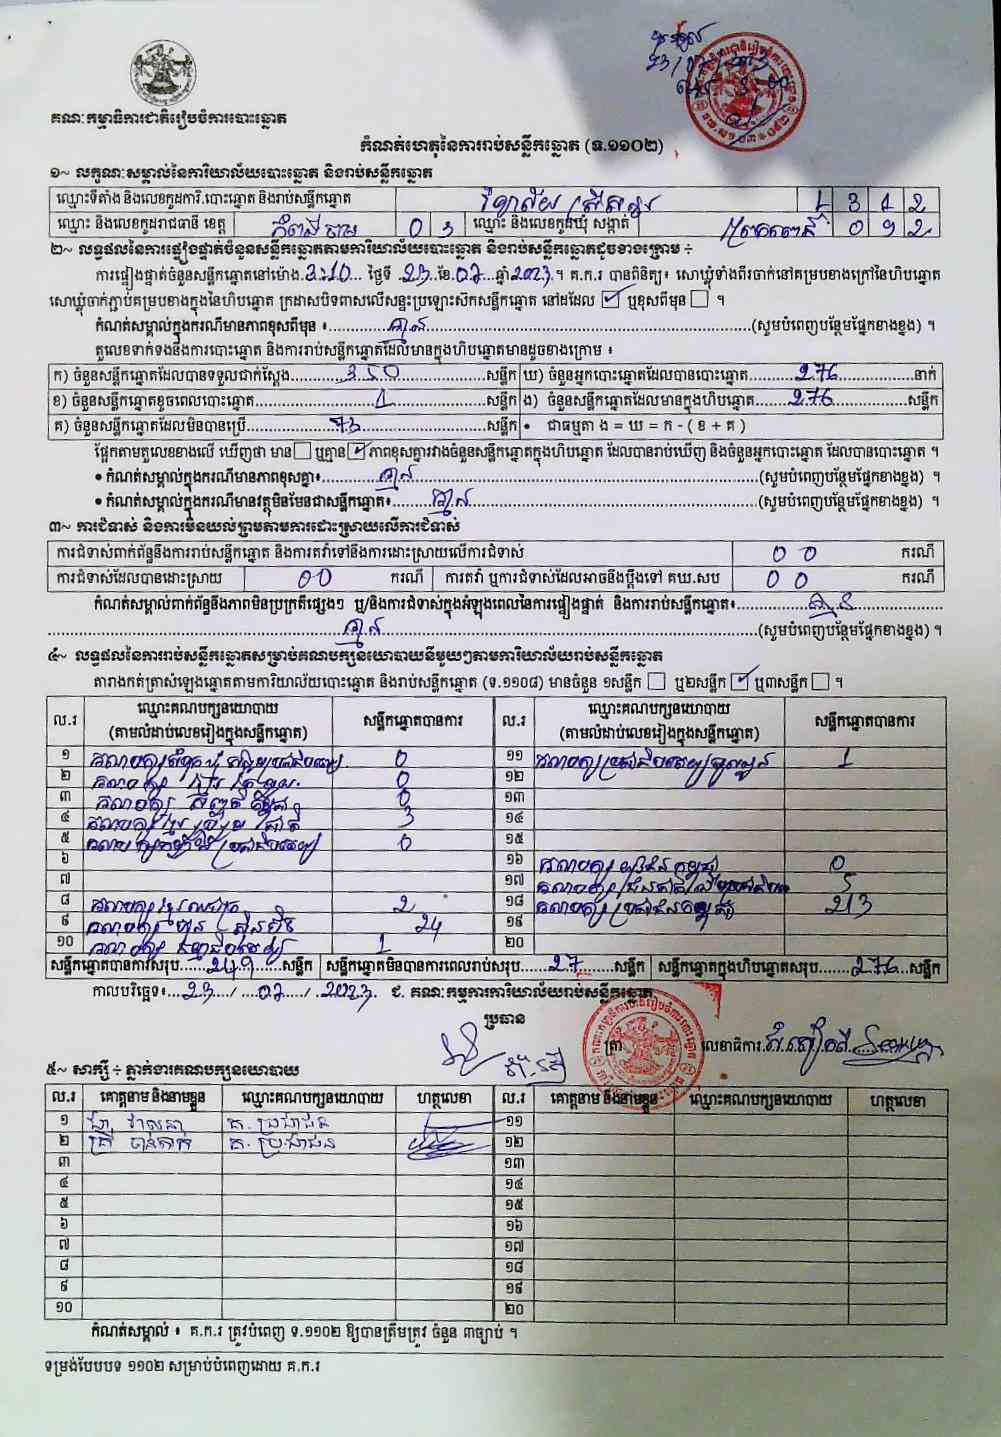 គណៈកម្មាធិការជាតិរៀបចំការបោះឆ្នោត
កំណត់ហេតុនៃការរាប់សន្លឹកឆ្នោត (ទ.១១០២)
១~ លក្ខណៈសម្គាល់នៃការិយាល័យបោះឆ្នោត និងរាប់សន្លឹកឆ្នោត
ឈ្មោះទីតាំង និងលេខកូដការិ.បោះឆ្នោត និងរាប់សន្លឹកឆ្នោត វិទ្យាល័យ
ឈ្មោះ និងលេខកូដរាជធានី ខេត្ត កំពង់ចាម 0 3 ឈ្មោះ និងលេខកូដឃុំ សង្កាត់ 0 9 2
២~ លទ្ធផលនៃការផ្ទៀងផ្ទាត់ចំនួនសន្លឹកឆ្នោតតាមការិយាល័យបោះឆ្នោត និងរាប់សន្លឹកឆ្នោតដូចខាងក្រោម ÷
ការផ្ទៀងផ្ទាត់ចំនួនសន្លឹកឆ្នោតនៅម៉ោង.3:10... ថ្ងៃទី .23.ខែ.07...ឆ្នាំ2023.។ គ.ក.រ បានពិនិត្យ៖ សោឃ្លុំទាំងពីរចាក់នៅគម្របខាងក្រៅនៃហិបឆ្នោត
សោឃ្លុំចាក់ភ្ជាប់គម្របខាងក្នុងនៃហិបឆ្នោត ក្រដាសបិទពាសលើសន្ទះប្រឡោះស៊កសន្លឹកឆ្នោត នៅដដែល ☑ ឬខុសពីមុន ☐ ។
កំណត់សម្គាល់ក្នុងករណីមានភាពខុសពីមុន ៖ គ្មាន (សូមបំពេញបន្ថែមផ្នែកខាងខ្នង) ។
តួលេខទាក់ទងនឹងការបោះឆ្នោត និងការរាប់សន្លឹកឆ្នោតដែលមានក្នុងហិបឆ្នោតមានដូចខាងក្រោម ៖
ក) ចំនួនសន្លឹកឆ្នោតដែលបានទទួលជាក់ស្តែង 350 សន្លឹក ឃ) ចំនួនអ្នកបោះឆ្នោតដែលបានបោះឆ្នោត 276 នាក់
ខ) ចំនួនសន្លឹកឆ្នោតខូចពេលបោះឆ្នោត 1 សន្លឹក ង) ចំនួនសន្លឹកឆ្នោតដែលមានក្នុងហិបឆ្នោត 276 សន្លឹក
គ) ចំនួនសន្លឹកឆ្នោតដែលមិនបានប្រើ 73 សន្លឹក • ជាធម្មតា ង = ឃ = ក - ( ខ + គ )
ផ្អែកតាមតួលេខខាងលើ ឃើញថា មាន ☐ ឬគ្មាន ☑ ភាពខុសគ្នារវាងចំនួនសន្លឹកឆ្នោតក្នុងហិបឆ្នោត ដែលបានរាប់ឃើញ និងចំនួនអ្នកបោះឆ្នោត ដែលបានបោះឆ្នោត ។
• កំណត់សម្គាល់ក្នុងករណីមានភាពខុសគ្នា៖ គ្មាន (សូមបំពេញបន្ថែមផ្នែកខាងខ្នង) ។
• កំណត់សម្គាល់ក្នុងករណីមានវត្ថុមិនមែនជាសន្លឹកឆ្នោត៖ គ្មាន (សូមបំពេញបន្ថែមផ្នែកខាងខ្នង) ។
៣~ ការជំទាស់ និងការមិនយល់ព្រមតាមការដោះស្រាយលើការជំទាស់
ការជំទាស់ពាក់ព័ន្ធនឹងការរាប់សន្លឹកឆ្នោត និងការតវ៉ាទៅនឹងការដោះស្រាយលើការជំទាស់ 0 0 ករណី
ការជំទាស់ដែលបានដោះស្រាយ 00 ករណី ការតវ៉ា ឬការជំទាស់ដែលអាចនឹងប្តឹងទៅ គឃ.សប 0 0 ករណី
កំណត់សម្គាល់ពាក់ព័ន្ធនឹងភាពមិនប្រក្រតីផ្សេងៗ ឬ/និងការជំទាស់ក្នុងអំឡុងពេលនៃការផ្ទៀងផ្ទាត់ និងការរាប់សន្លឹកឆ្នោត៖ គ្មាន
គ្មាន (សូមបំពេញបន្ថែមផ្នែកខាងខ្នង) ។
៤~ លទ្ធផលនៃការរាប់សន្លឹកឆ្នោតសម្រាប់គណបក្សនយោបាយនីមួយៗតាមការិយាល័យរាប់សន្លឹកឆ្នោត
តារាងកត់ត្រាសំឡេងឆ្នោតតាមការិយាល័យបោះឆ្នោត និងរាប់សន្លឹកឆ្នោត (ទ.១១០៨) មានចំនួន ១សន្លឹក ☐ ឬ២សន្លឹក ☑ ឬ៣សន្លឹក ☐ ។
ល.រ ឈ្មោះគណបក្សនយោបាយ (តាមលំដាប់លេខរៀងក្នុងសន្លឹកឆ្នោត) សន្លឹកឆ្នោតបានការ ល.រ ឈ្មោះគណបក្សនយោបាយ (តាមលំដាប់លេខរៀងក្នុងសន្លឹកឆ្នោត) សន្លឹកឆ្នោតបានការ
១ 0 ១១ 1
២ 0 ១២
៣ 0 ១៣
៤ គណបក្សខ្មែររួបរួមជាតិ 3 ១៤
៥ 0 ១៥
៦ ១៦ គណបក្ស យុវជនកម្ពុជា 0
៧ ១៧ 5
៨ 2 ១៨ គណបក្ស ប្រជាជនកម្ពុជា 213
៩ គណបក្ស ហ្វ៊ុនស៊ិនប៉ិច 24 ១៩
១០ 1 ២០
សន្លឹកឆ្នោតបានការសរុប 249 សន្លឹក សន្លឹកឆ្នោតមិនបានការពេលរាប់សរុប 27 សន្លឹក សន្លឹកឆ្នោតក្នុងហិបឆ្នោតសរុប 276 សន្លឹក
កាលបរិច្ឆេទ៖ 23 / 07 / 2023 ជ. គណៈកម្មការការិយាល័យរាប់សន្លឹកឆ្នោត
ប្រធាន
ត្រា លេខាធិការ
៥~ សាក្សី ÷ ភ្នាក់ងារគណបក្សនយោបាយ
ល.រ គោត្តនាម និងនាមខ្លួន ឈ្មោះគណបក្សនយោបាយ ហត្ថលេខា ល.រ គោត្តនាម និងនាមខ្លួន ឈ្មោះគណបក្សនយោបាយ ហត្ថលេខា
១ គ. ប្រជាជន ១១
២ គ. ប្រជាជន ១២
៣ ១៣
៤ ១៤
៥ ១៥
៦ ១៦
៧ ១៧
៨ ១៨
៩ ១៩
១០ ២០
កំណត់សម្គាល់ ៖ គ.ក.រ ត្រូវបំពេញ ទ.១១០២ ឱ្យបានត្រឹមត្រូវ ចំនួន ៣ច្បាប់ ។
ទម្រង់បែបបទ ១១០២ សម្រាប់បំពេញដោយ គ.ក.រ